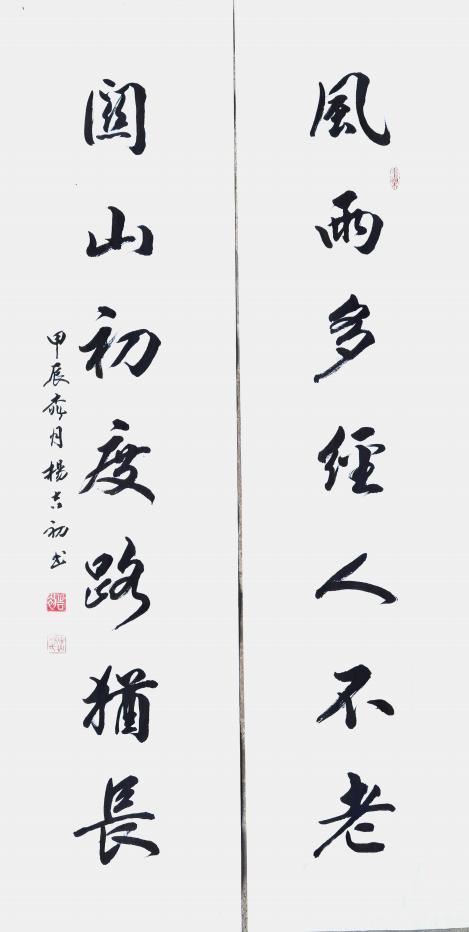 風雨多經人不老
關山初度路猶長
甲辰年月楊吉初書